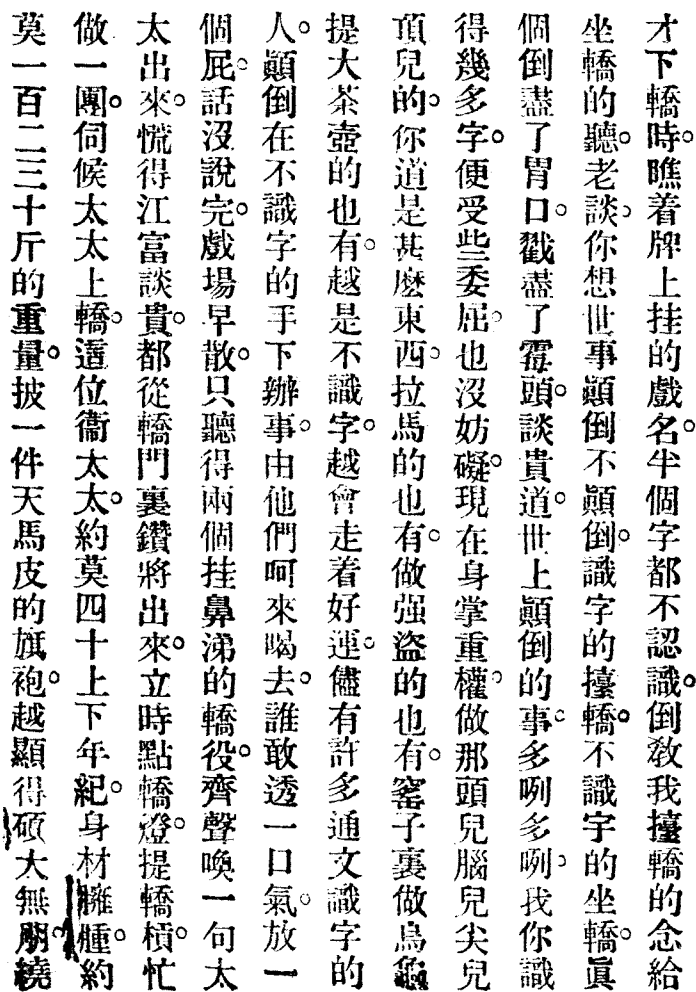 才下轎時。瞧着牌上挂的戲名。半個字都不認識。倒敎我擡轎的念給
坐轎的聽。老談。你想世事顚倒不顚倒。識字的擡轎。不識字的坐轎。眞
個倒盡了胃口。戳盡了霉頭。談貴道。世上顚倒的事。多咧多咧。我你識
得幾多字。便受些委屈。也沒妨礙。現在身掌重權。做那頭兒腦兒尖兒
頂兒的。你道是甚麽東西。拉馬的也有。做强盜的也有。窰子裏做烏龜
提大茶壺的也有。越是不識字。越會走着好運。儘有許多通文識字的
人。顚倒在不識字的手下辦事。由他們呵來喝去。誰敢透一口氣。放一
個屁。話沒說完。戲場早散。只聽得兩個挂鼻涕的轎役。齊聲喚一句太
太出來。慌得江富談貴。都從轎門裏鑽將出來。立時點轎燈。提轎槓。忙
做一團。伺候太太上轎。這位衞太太。約莫四十上下年紀。身材臃腫。約
莫一百二三十斤的重量。披一件天馬皮的旗袍。越顯得碩大無朋。繞